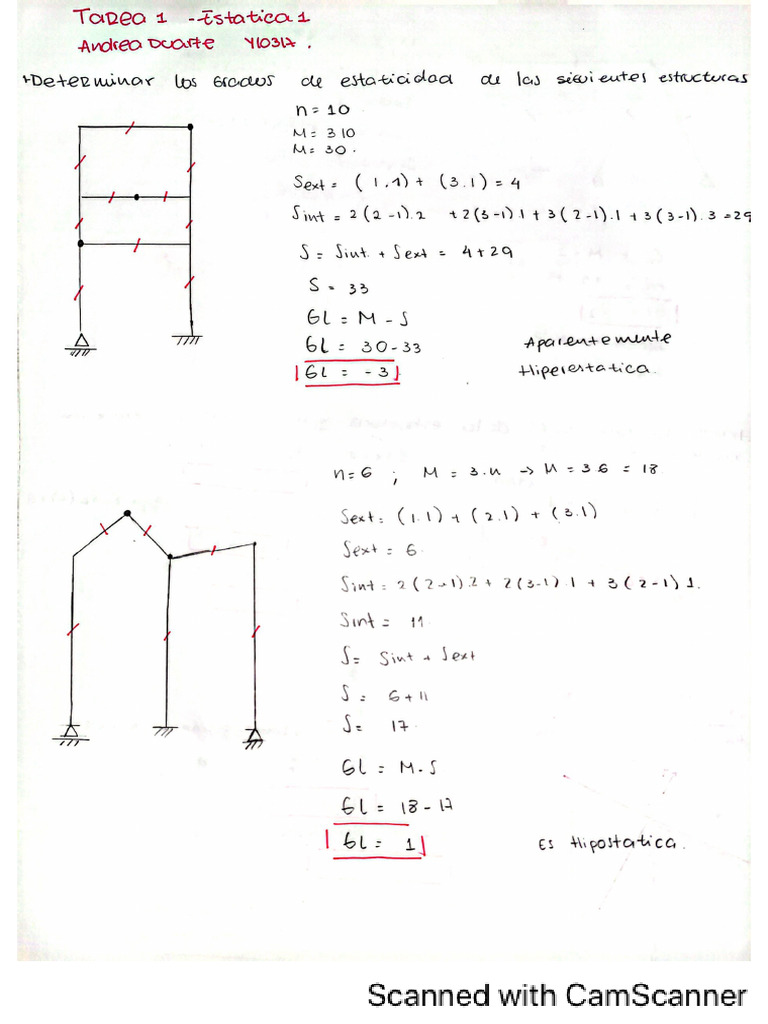 Tarea 1 - Estatica 1
Andrea Duarte Y10317.
Determinar los Grados de estaticidad de las siguientes estructuras
n = 10
M = 3 10
M = 30.
Sext = (1.1) + (3.1) = 4
Sint = 2(2-1).2 + 2(3-1).1 + 3(2-1).1 + 3(3-1).3 = 29
S = Sint. + Sext = 4+29
S = 33
GL = M - S
GL = 30-33
GL = -3
Aparentemente
Hiperestatica.
n=6 ; M = 3.n -> M = 3.6 = 18
Sext: (1.1) + (2.1) + (3.1)
Sext = 6.
Sint = 2(2-1).2 + 2(3-1).1 + 3(2-1)1.
Sint = 11
S= Sint + Sext
S = 6+11
S= 17.
GL = M-S
GL = 18-17
GL = 1
Es Hipostatica.
Scanned with CamScanner